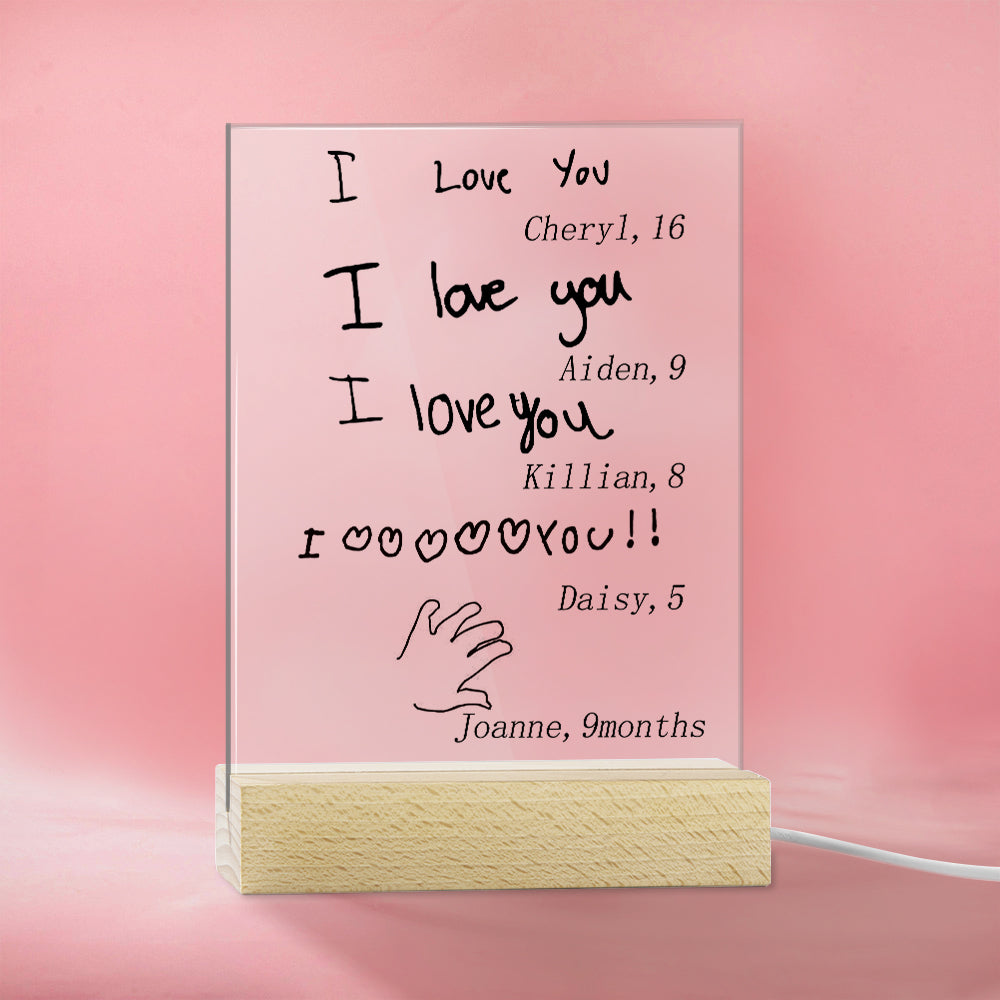 I Love You
Cheryl, 16
I love you
Aiden, 9
I love you
Killian, 8
I ♡♡♡♡♡ YOU!!
Daisy, 5
Joanne, 9months